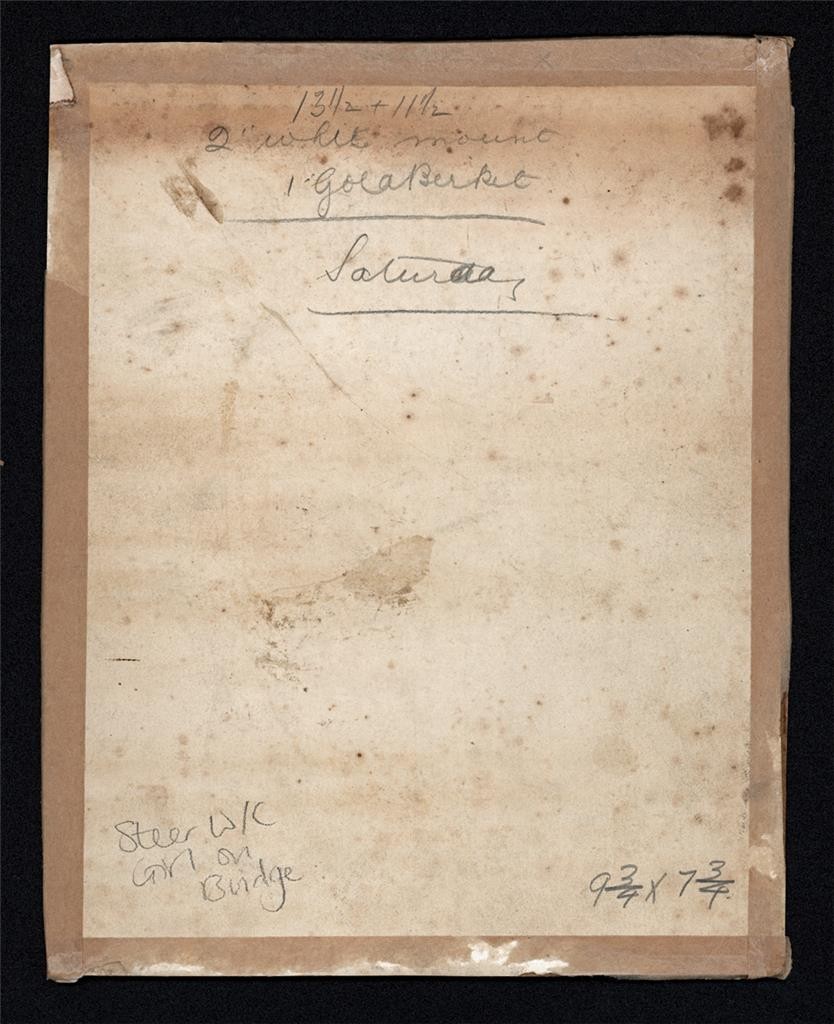 13½ + 11½
2" white mount
1 Gold
Saturday
Steer W/C
Girl on
Bridge
9¾ X 7¾